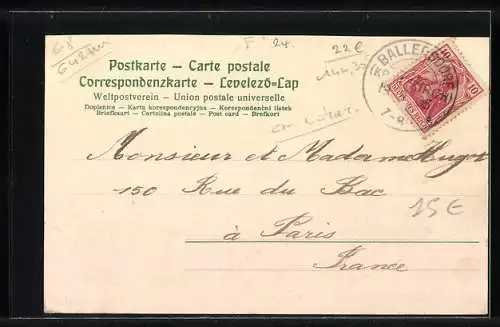 22 l
144,30
15€
Postkarte – Carte postale
Correspondenzkarte – Levelező-Lap
Weltpostverein – Union postale universelle
Dopisnice – Karta korespondencyjna – Korespondenčni listek
Briefkaart – Cartolina postale – Post card – Brefkort
10 10
Monsieur et Madame Hugot
150 Rue du Bac
à Paris
France